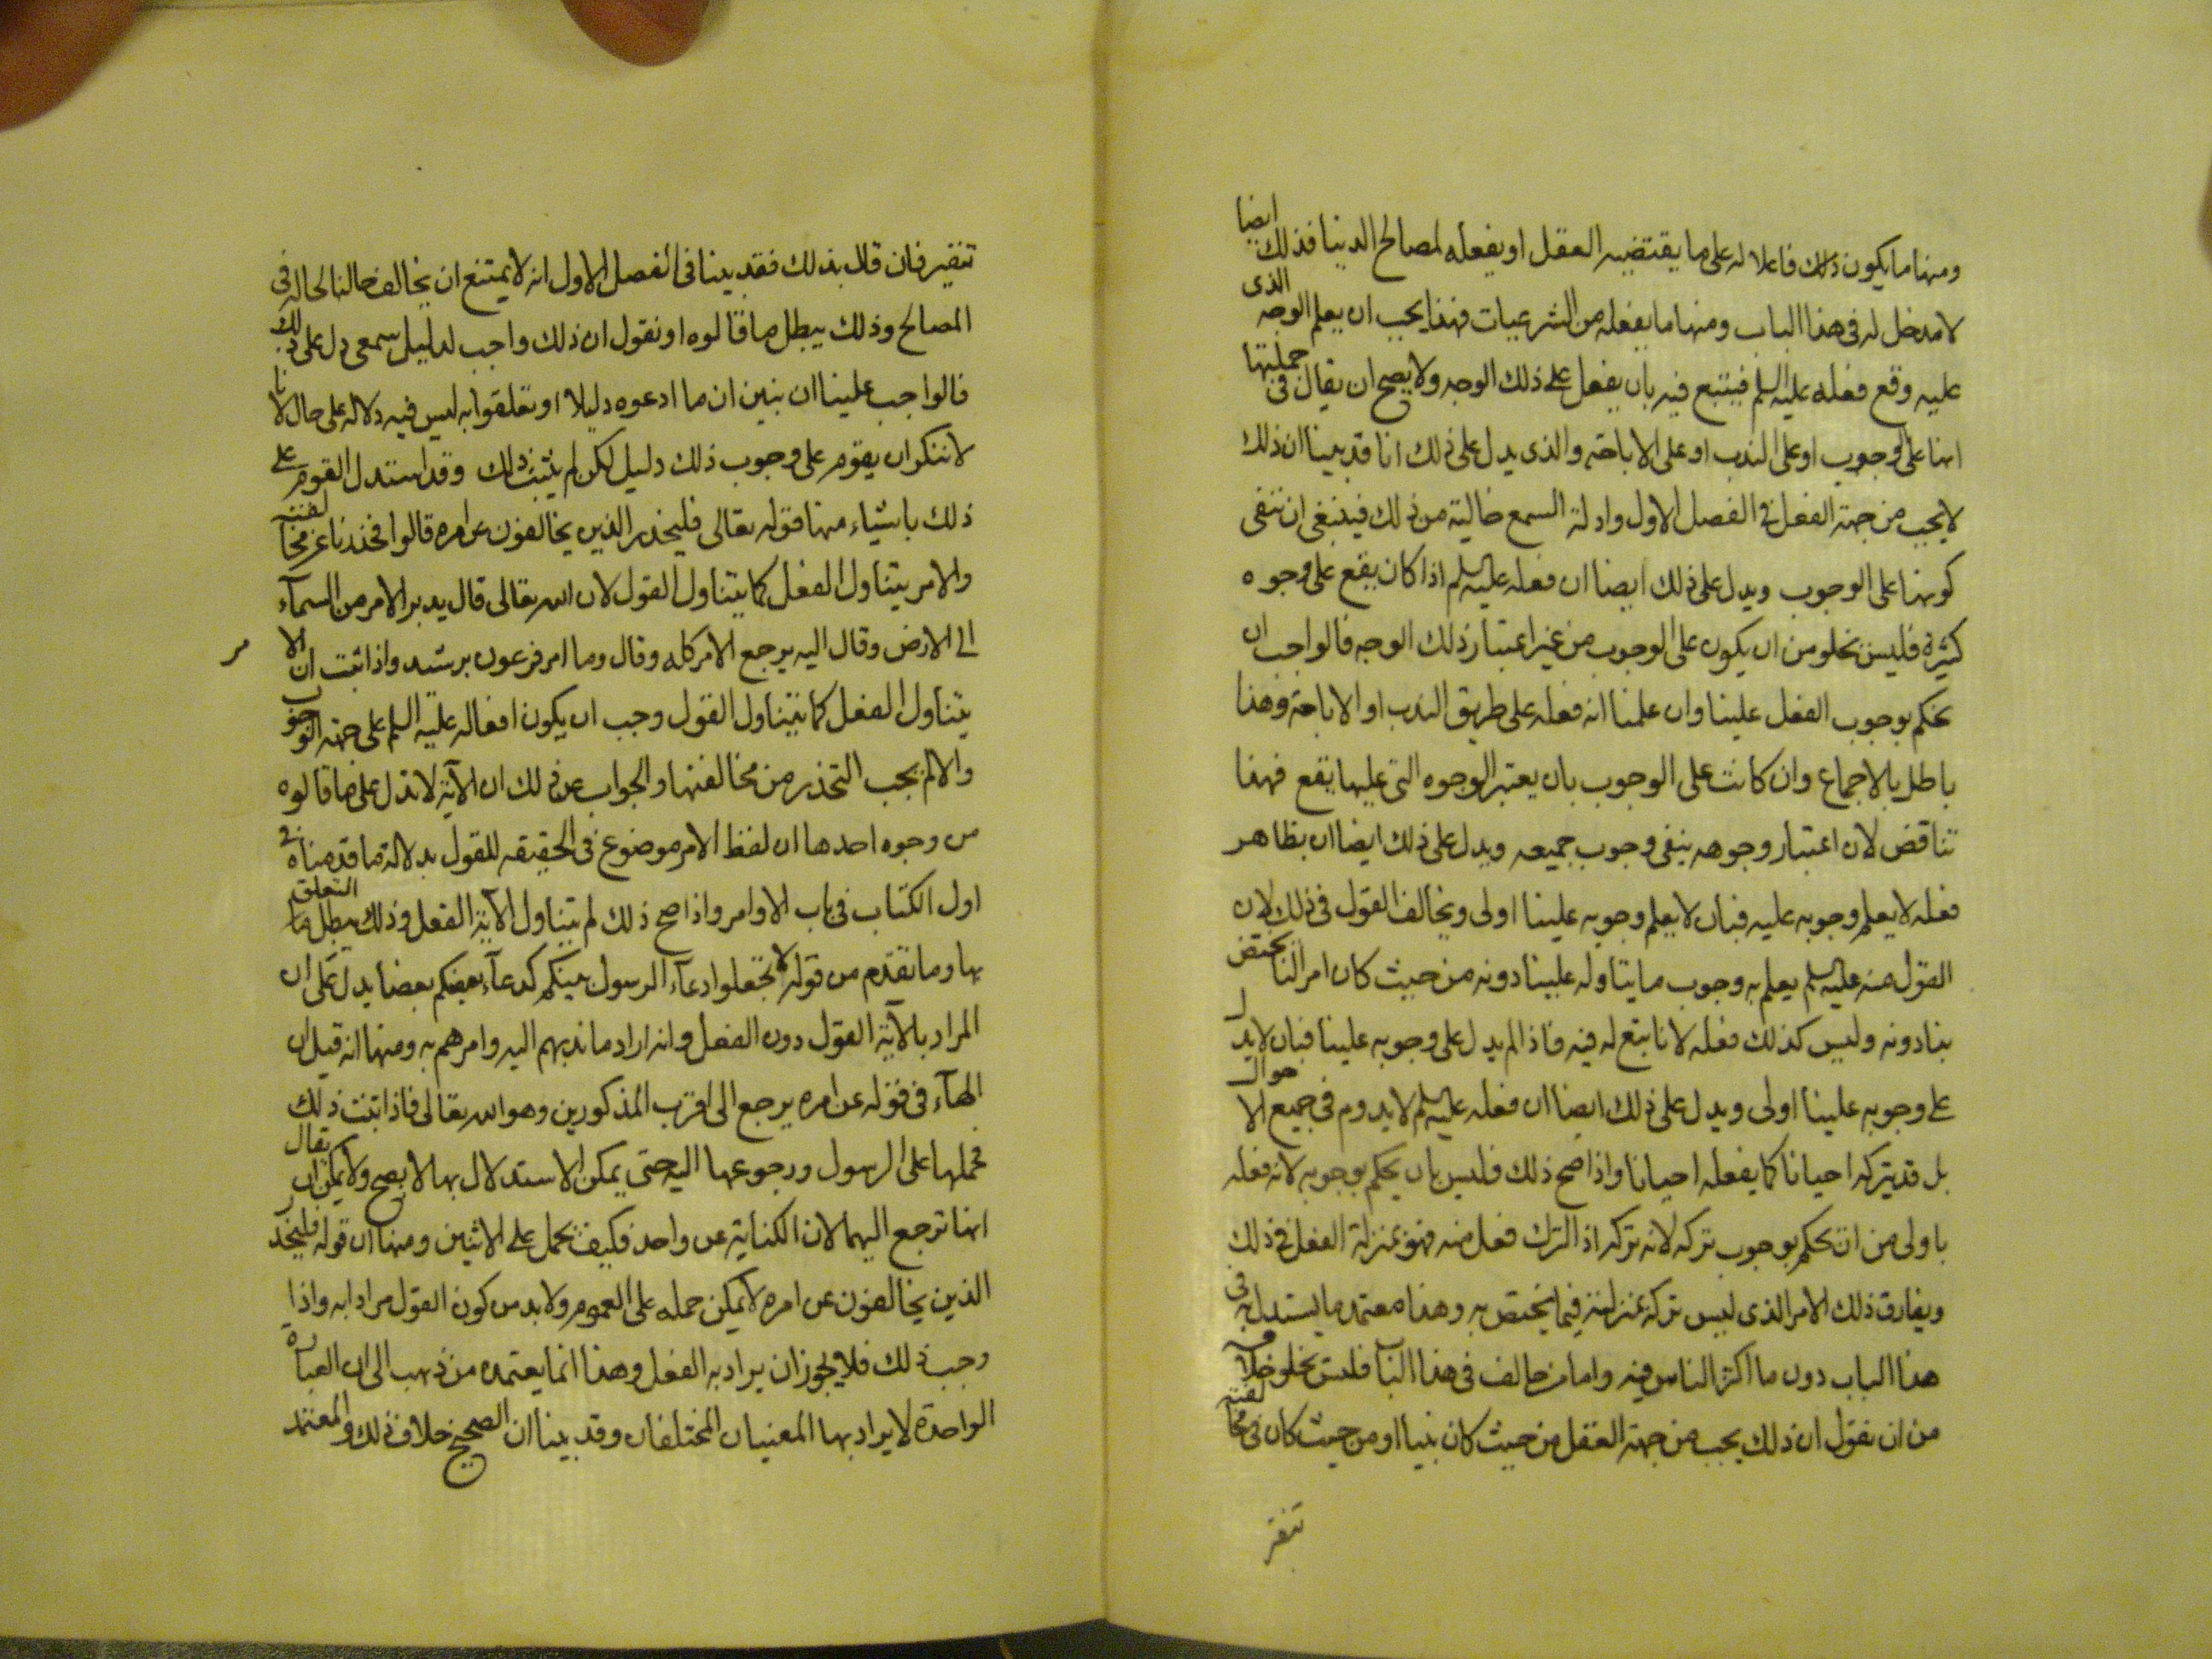 ومنها ما يكون ذلك فاعلا له على ما يقتضيه العقل او يفعله لمصالح الدينا فذلك ايضا
لا مدخل له فى هذا الباب ومنها ما يفعله من الشرعيات فهذا يجب ان يعلم الوجه الذى
عليه وقع فعله عليه السلم فيتبع فيه بان يفعل على ذلك الوجه ولا يصح ان يقال فى جملتها
انها على الوجوب او على الندب او على الاباحة والذى يدل على ذلك انا قد بينا ان ذلك
لا يجب من جهة الفعل فى الفصل الاول وادلة السمع خالية من ذلك فينبغى ان ننفى
كونها على الوجوب ويدل على ذلك ايضا ان فعله عليه السلم اذا كان يقع على وجوه
كثيرة فليس يخلو من ان يكون على الوجوب من غير اعتبار ذلك الوجه فالواجب ان
نحكم بوجوب الفعل علينا وان علمنا انه فعله على طريق الندب او الاباحة وهذا
باطل بالاجماع وان كانت على الوجوب بان يعتبر الوجوه التى عليها تقع فهذا
تناقض لان اعتبار وجوهه ينفى وجوب جميعه ويدل على ذلك ايضا ان بظاهر
فعله لا يعلم وجوبه عليه فبان لا يعلم وجوبه علينا اولى ويخالف القول فى ذلك لان
القول منه عليه السلم يعلم به وجوب ما يتناوله علينا دونه من حيث كان امرا لنا يختص
بنا دونه وليس كذلك فعله لانا نتبع له فيه فاذا لم يدل على وجوبه علينا فبان لا يدل
على وجوبه علينا اولى ويدل على ذلك ايضا ان فعله عليه السلم لا يدوم فى جميع الاحوال
بل قد يتركه احيانا كما يفعله احيانا واذا صح ذلك فليس بان يحكم بوجوبه لانه فعله
باولى من ان نحكم بوجوب تركه لانه تركه اذ الترك فعل منه فهو بمنزلة الفعل فى ذلك
ويفارق ذلك الامر الذى ليس تركه بمنزلته فيما يختص به وهذا معتمد ما يستدل به فى
هذا الباب دون ما اكثر الناس فيه واما من خالف فى هذا البا فليس يخلو خلافه
من ان نقول ان ذلك يجب من جهة العقل من حيث كان نبيا او من حيث كان فى مخالفته
تنفير
تنفير فان قال بذلك فقد بينا فى الفصل الاول انه لا يمتنع ان يخالف حالنا لحاله فى
المصالح وذلك يبطل ما قالوه او نقول ان ذلك واجب لدليل سمعى دل على ذلك
فالواجب علينا ان نبين ان ما ادعوه دليلا او تعلقوا به ليس فيه دلالة على حال لانا
لا ننكر ان يقوم على وجوب ذلك دليل لكن لم يثبت ذلك وقد استدل القوم على
ذلك باشياء منها قوله تعالى فليحذر الذين يخالفون عن امره قالوا فحذرنا عن مخالفته
والامر يتناول الفعل كما يتناول القول لان الله تعالى قال يدبر الامر من السمآء
الى الارض وقال اليه يرجع الامر كله وقال وما امر فرعون برشيد واذا ثبت ان الامر
يتناول الفعل كما يتناول القول وجب ان يكون افعاله عليه السلم على جهة الوجوب
والا لم يجب التحذر من مخالفتها والجواب عن ذلك ان الآية لا تدل على ما قالوه
من وجوه احدها ان لفظ الامر موضوع فى الحقيقه للقول بدلالة ما قدمناه فى
اول الكتاب فى باب الاوامر واذا صح ذلك لم يتناول الآية الفعل وذلك يبطل التعلق
بها وما تقدم من قوله لا تجعلوا دعآء الرسول بينكم كدعآء بعضكم بعضا يدل على ان
المراد بالآية القول دون الفعل وانه اراد ما ندبهم اليه وامرهم به ومنها انه قيل ان
الهآء فى قوله عن امره يرجع الى اقرب المذكورين وهو الله تعالى فاذا ثبت ذلك
فحملها على الرسول ورجوعها اليه حتى يمكن الاستدلال بها لا يصح ولا يمكن ان يقال
انها ترجع اليهما لان الكناية عن واحد فكيف تحمل على الاثنين ومنها ان قوله فليحذر
الذين يخالفون عن امره لا يمكن حمله على العموم ولا بد من كون القول مرادا به واذا
وجب ذلك فلا يجوز ان يراد به الفعل وهذا انما يعتمده من ذهب الى ان العبارة
الواحدة لا يراد بها المعنيان المختلفان وقد بينا ان الصحيح خلاف ذلك والمعتمد